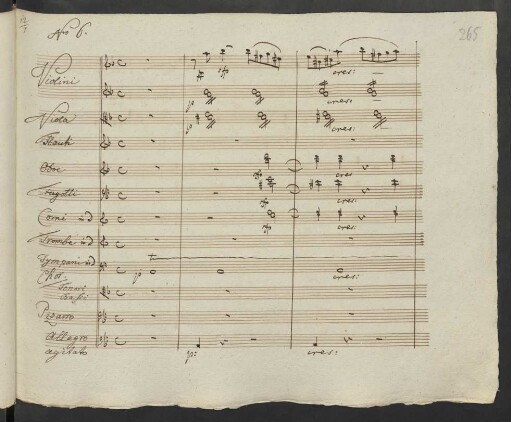 Nro 6.
265
Violini
cres:
p
cres:
Viola
p
cres:
Flauti
Oboe
cres
Fagotti
cres:
Corni in D
cres:
Trombe in D
Tympani in D
Chor
p
cres:
Tenori
Bassi
Pizarro
Allegro
agitato
p:
cres: